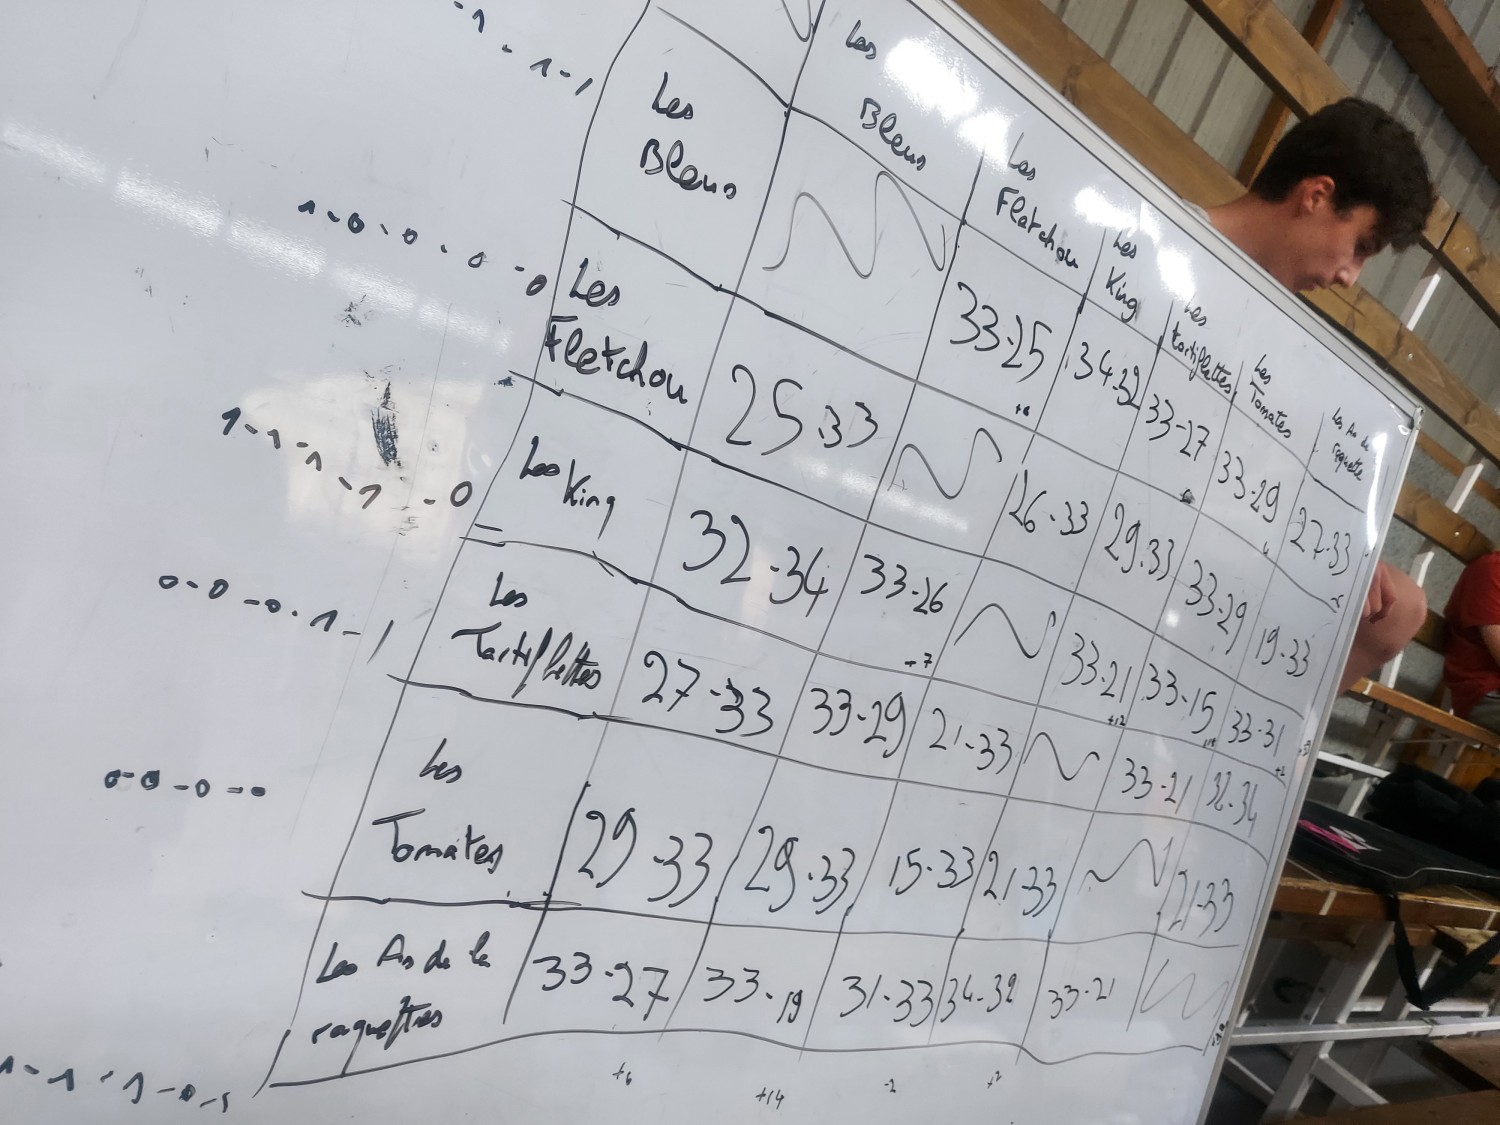 Les Bleus
Les Fletchou
Les King
Les tartiflettes
Les Tomates
Les As de raquette
-1 - 1-1
Les Bleus
33-25
34-32
33-27
33-29
27-33
1-0-0-0-0
Les Fletchou
25-33
26-33
29-33
33-29
19-33
1-1-1-1-0
Les King
32-34
33-26
+7
33-21
+12
33-15
33-31
+2
0-0-0-1-1
Les Tartiflettes
27-33
33-29
21-33
33-21
32-34
0-0-0--0
Les Tomates
29-33
29-33
15-33
21-33
21-33
1-1-1-0-1
Les As de la raquettes
33-27
33-19
31-33
34-32
33-21
+6
+14
-2
+2